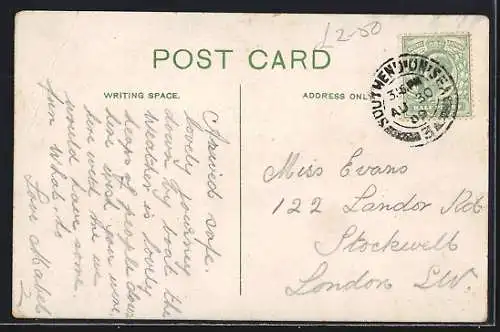 £2-50
POST CARD
WRITING SPACE.
ADDRESS ONLY
SOUTHEND-ON-SEA
AU 30
09
Arrived safe.
lovely journey
down by boat the
weather is lovely
heaps of people down
here wish you were
here wed me we
would have some
fun what, to
Love Mabel
Miss Evans
122 Landor Rd
Stockwell
London S.W.